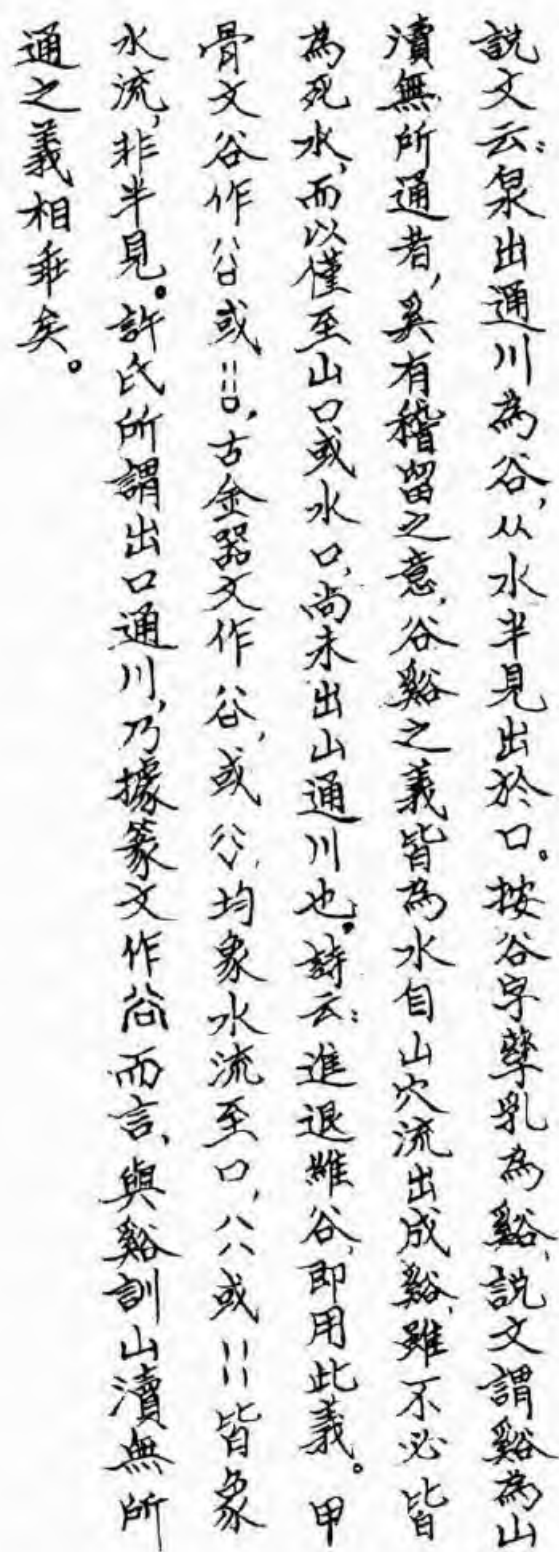 說文云：泉出通川為谷，从水半見出於口。按谷字孳乳為谿，說文謂谿為山
瀆無所通者，奚有稽留之意，谷谿之義皆為水自山穴流出成谿，雖不必皆
為死水，而以僅至山口或水口，尚未出山通川也。詩云：進退維谷，即用此義。甲
骨文谷作或，古金器文作谷，或，均象水流至口，八八或皆象
水流，非半見。許氏所謂出口通川，乃據篆文作谷而言，與谿訓山瀆無所
通之義相乖矣。